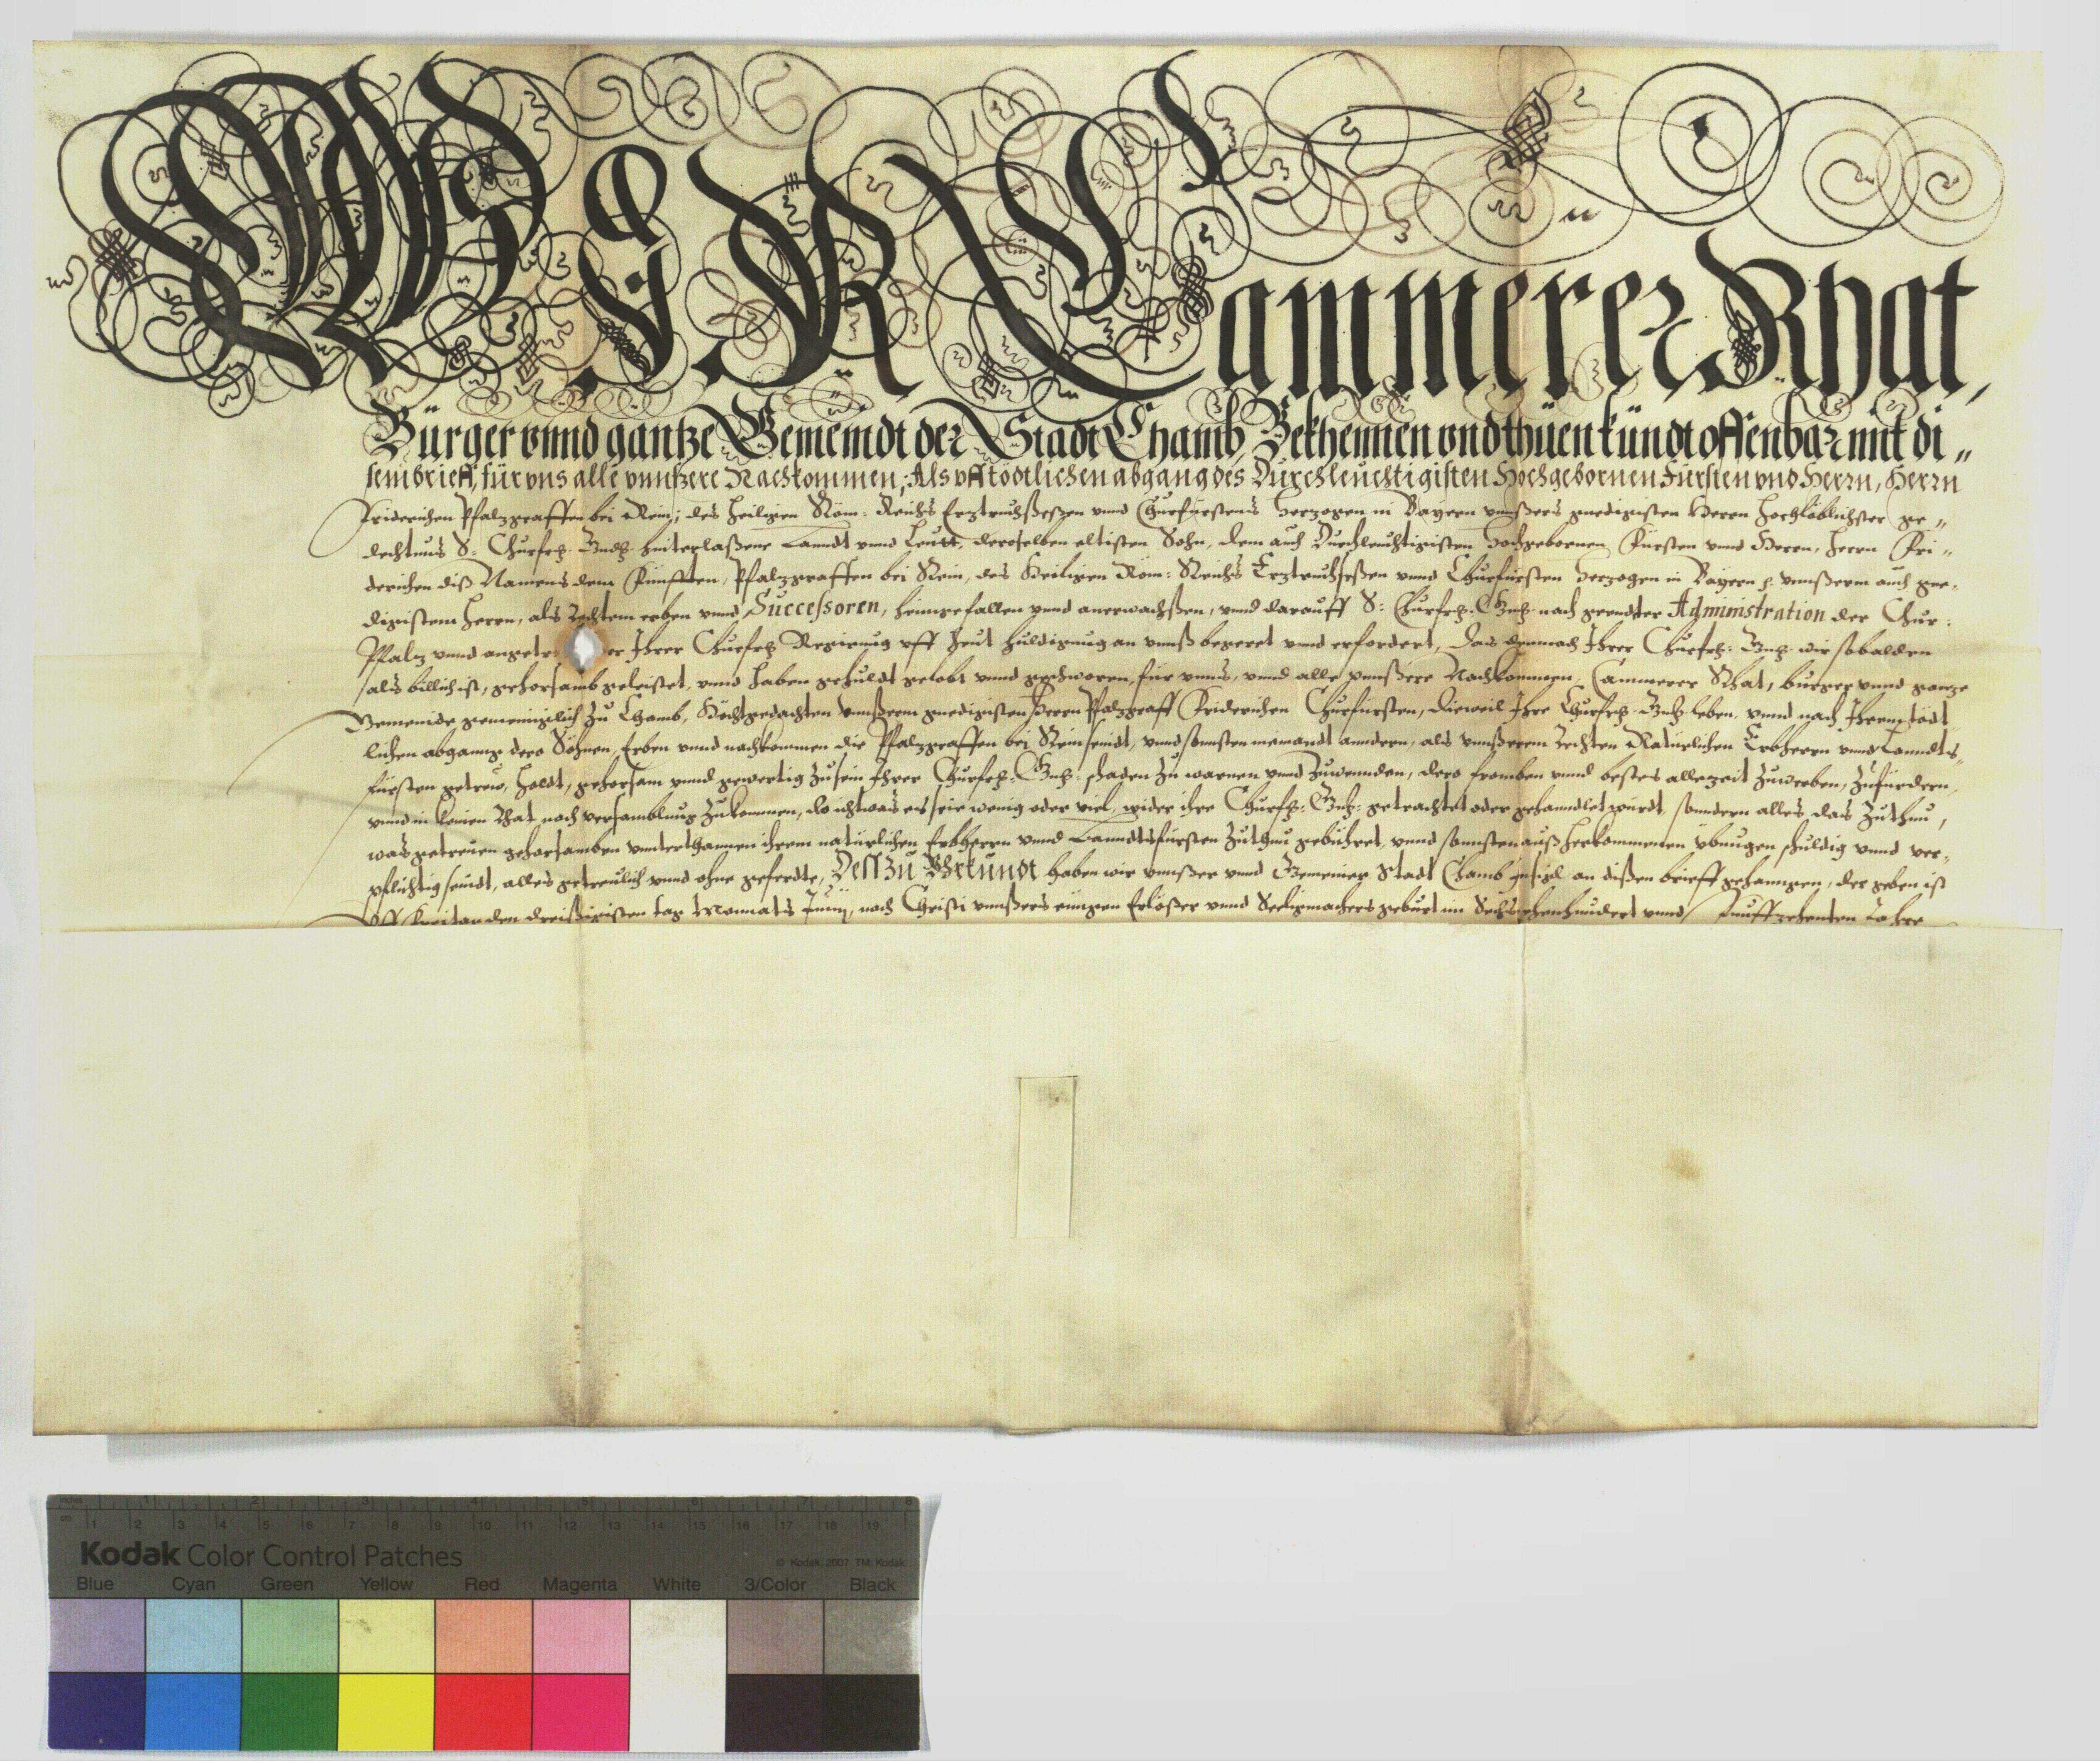 WIR Cammerer Rhat,
Bürger vnnd gantze Gemeindt der Stadt Chamb, Bekhennen vnd thüen kündt offenbar mit di„
sem brieff, für vns alle vnnsere Nachkommen, Als vff tödtlichen abgang des Durchleuchtigisten Hochgebornen Fürsten vnd Herrn, Herrn
Friderichen Pfalzgraffen bei Rein, des heiligen Röm: Reichs Erztruchseßzen vnnd Churfürstens Herzogen in Bayern vnnßers gnedigisten Herrn hochlöblichster ge„
dechtnus S: Churfrh: Gndh: hinterlaßene Lanndt vnnd Leutt, deroselben eltisten Sohn, dem auch Durchleuchtigisten Hochgebornen Fürsten vnnd Herrn, Herrn Fri„
derichen diß Namens dem Fünfften, Pfalzgraffen bei Rein, des Heiligen Röm: Reichs Erztruchseßen vnnd Churfürsten Herzogen in Bayern p. vnnßerm auch gne„
digistem Herrn, als rechtem erben vnnd Successoren, heimgefallen vnnd anerwachßen, vnnd darauff S: Churfrh: Gnh: nach geendter Administration der Chur:
Pfalz vnnd angetr er Ihrer Churfrh: Regirung vff heut huldigung an vnnß begeret vnnd erfordert, Das demnach Ihrer Churfrh: Gnh: wir sobalden
als billich ist, gehorsamb geleistet, vnnd haben gehuldt gelobt vnnd geschworen, für vnns, vnnd alle vnnßere Nachkommen, Cammerer Rhat, burger vnnd ganze
Gemeinde gemeiniglich zu Chamb, Höchstgedachten vnnßerm gnedigisten Herrn Pfalzgraff Friderichen Churfürsten, Dieweil Ihre Churfrh: Gnh: leben, vnnd nach Ihrem tödt
lichen abgang dero Söhnen, Erben vnnd nachkommen die Pfalzgraffen bei Rein seindt, vnnd sonnsten niemandt anndern, als vnnßerem rechten Natürlichen Erbherrn vnnd Lanndts„
fürsten getrew, holdt, gehorsam vnnd gewertig zu sein Ihrer Churfrh: Gnh: schaden zu warnen vnnd zuwennden, dero fromben vnnd bestes allezeit zuwerben, zufürdern,
vnnd in keinen Rhat noch versamblung zukommen, do ichtwas es seie wenig oder viel, wider ihre Churfh: Gnh: getrachtet oder gehanndlet wurdt, sondern alles das zuthun,
was getreuen gehorsamben vnnterthannen ihrem natürlichen Erbherrn vnnd Lanndtsfürsten zuthun gebühret, vnnd sonnsten auß herkommenen vbungen schuldig vnnd ver„
pflichtig seindt, alles getreulich vnnd ohne geferdte, Dess zu Vrkundt haben wir vnnßer vnnd Gemeiner Stadt Chamb Insigl an dißen brieff gehanngen, der geben ist
Vff Freitag den dreißigisten tag Monnats Junij, nach Christi vnnßers einigen Erlößer vnnd Seeligmachers geburt im Sechzehenhundert vnnd Funffzehenten Jahre
Kodak Color Control Patches
© Kodak, 2007 TM: Kodak
Blue Cyan Green Yellow Red Magenta White 3/Color Black